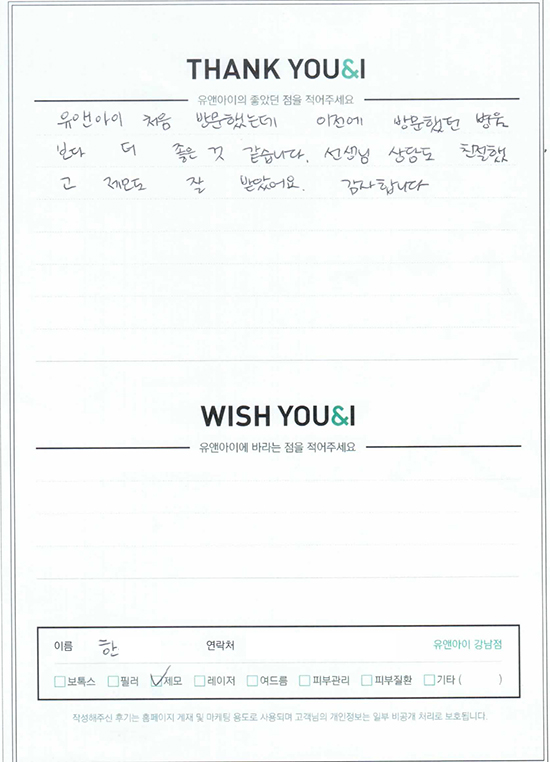 THANK YOU&I
유앤아이의 좋았던 점을 적어주세요
유앤아이 처음 방문했는데 이전에 방문했던 병원
보다 더 좋은 것 같습니다. 선생님 상담도 친절했
고 제모도 잘 받았어요. 감사합니다
WISH YOU&I
유앤아이에 바라는 점을 적어주세요
이름 한 연락처 유앤아이 강남점
보톡스 필러 제모 레이저 여드름 피부관리 피부질환 기타 ( )
작성해주신 후기는 홈페이지 게재 및 마케팅 용도로 사용되며 고객님의 개인정보는 일부 비공개 처리로 보호됩니다.